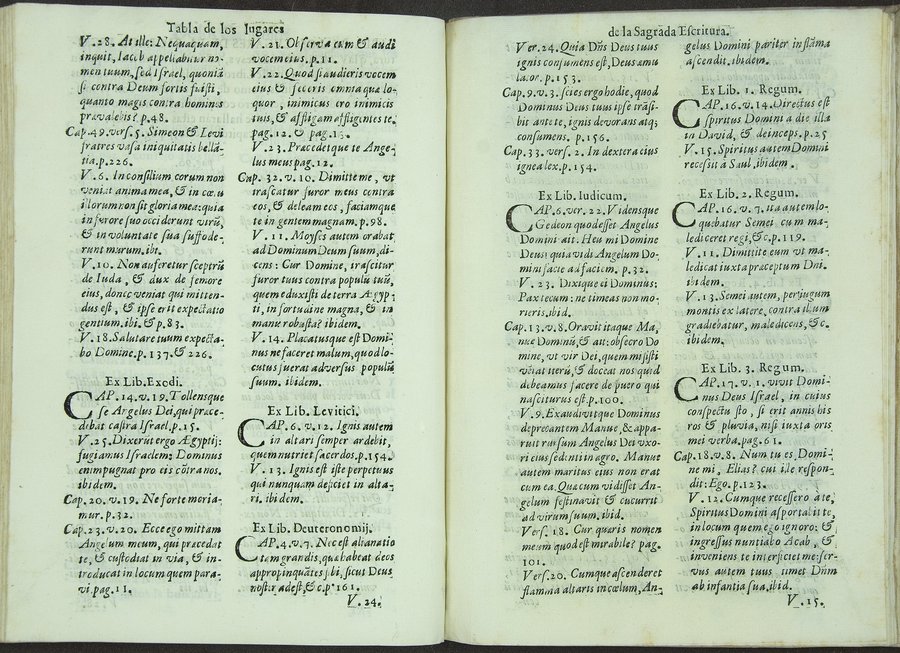 Tabla de los lugares
V.28. At ille: Nequaquam,
inquit, Iacob appellabitur no-
men tuum, sed Israel, quoniã
si contra Deum fortis fuisti,
quanto magis contra homines
prævalebis? p.48.
Cap.49.vers.5. Simeon & Levi
fratres vasa iniquitatis bellã-
tia.p.226.
V.6. In consilium eorum non
veniat anima mea, & in cœtu
illorum non sit gloria mea: quia
in furore suo occiderunt virũ,
& in voluntate sua suffode-
runt murum.ibi.
V.10. Non auferetur sceptrũ
de Iuda, & dux de femore
eius, donec veniat qui mitten-
dus est, & ipse erit expectatio
gentium.ibi.& p.83.
V.18. Salutare tuum expecta-
bo Domine.p.137.& 226.
Ex Lib.Exodi.
CAP.14.v.19. Tollensque
se Angelus Dei, qui præce-
debat castra Israel.p.15.
V.25. Dixerũt ergo Ægyptij:
fugiamus Israelem: Dominus
enim pugnat pro eis cõtra nos.
ibidem.
Cap.20.v.19. Ne forte moria-
mur.p.32.
Cap.23.v.20. Ecce ego mittam
Angelum meum, qui præcedat
te, & custodiat in via, & in-
troducat in locum quem para-
vi.pag.11.
V.21. Observa eum & audi
vocem eius.p.11.
V.22. Quod si audieris vocem
eius & feceris omnia quæ lo-
quor, inimicus ero inimicis
tuis, & affligam affligentes te.
pag.12.& pag.13.
V.23. Præcedetque te Ange-
lus meus pag.12.
Cap. 32. v. 10. Dimitte me, vt
irascatur furor meus contra
eos, & deleam eos, faciamque
te in gentem magnam, p.98.
V.11. Moyses autem orabat
ad Dominum Deum suum, di-
cens: Cur Domine, irascitur
furor tuus contra populũ tuũ,
quem eduxisti de terra Ægyp-
ti, in fortitudine magna, & in
manu robusta? ibidem.
V.14. Placatusque est Domi-
nus ne faceret malum, quod lo-
cutus fuerat adversus populũ
suum. ibidem.
Ex Lib. Levitici.
CAP.6.v.12. Ignis autem
in altari semper ardebit,
quem nutriet sacerdos.p.154.
V.13. Ignis est iste perpetuus
qui nunquam deficiet in alta-
ri. ibidem.
Ex Lib. Deuteronomij.
CAP.4.v.7. Nec est alia natio
tam grandis, quæ habeat deos
appropinquãtes sibi, sicut Deus
noster adest, &c.pº 161.
V.24.
de la Sagrada Escritura.
Ver.24. Quia Dñs Deus tuus
ignis consumens est, Deus æmu
lator.p.153.
Cap.9.v.3. scies ergo hodie, quod
Dominus Deus tuus ipse trãsi-
bit ante te, ignis devorans atq;
consumens. p.156.
Cap.33. vers. 2. In dextera eius
ignea lex.p.154.
Ex Lib. Iudicum.
CAP.6.ver.22. Vidensque
Gedeon quod esset Angelus
Domini ait: Heu mi Domine
Deus: quia vidi Angelum Do-
mini facie ad faciem. p.32.
V. 23. Dixitque ei Dominus:
Pax tecum: ne timeas non mo-
rieris.ibid.
Cap.13.v.8. Oravit itaque Ma-
nue Dominũ, & ait: obsecro Do
mine, vt vir Dei, quem misisti
veniat iterũ, & doceat nos quid
debeamus facere de puero qui
nasciturus est.p.100.
V.9. Exaudivitque Dominus
deprecantem Manue, & appa-
ruit rursum Angelus Dei vxo-
ri eius sedenti in agro. Manue
autem maritus eius non erat
cum ea. Quæ cum vidisset An-
gelum festinavit & cucurrit
ad virum suum.ibid.
Vers. 18. Cur quæris nomen
meum quod est mirabile? pag.
101.
Vers.20. Cumque ascenderet
flamma altaris in cœlum, An-
gelus Domini pariter in flãma
ascendit.ibidem.
Ex Lib. 1. Regum.
CAP.16.v.14. Directus est
spiritus Domini a die illa
in David, & deinceps.p.25
V.15. Spiritus autem Domini
recessit a Saul.ibidem.
Ex Lib. 2. Regum.
CAP.16.v.7. ita autem lo-
quebatur Semei cum ma-
lediceret regi, &c.p.119.
V.11. Dimittite eum vt ma-
ledicat iuxta præceptum Dñi.
ibidem.
V.13. Semei autem, per jugum
montis ex latere, contra illum
gradiebatur, maledicens, &c.
ibidem.
Ex Lib. 3. Regum.
CAP.17.v.1. vivit Domi-
nus Deus Israel, in cuius
conspectu sto, si erit annis his
ros & pluvia, nisi iuxta oris
mei verba.pag.61.
Cap.18.v.8. Num tu es, Domi-
ne mi, Elias? cui ille respon-
dit: Ego.p.123.
V.12. Cumque recessero a te,
Spiritus Domini asportabit te,
in locum quem ego ignoro: &
ingressus nuntiabo Acab, &
inveniens te interficiet me: ser-
vus autem tuus timet Dñm
ab infantia sua.ibid.
V.15.